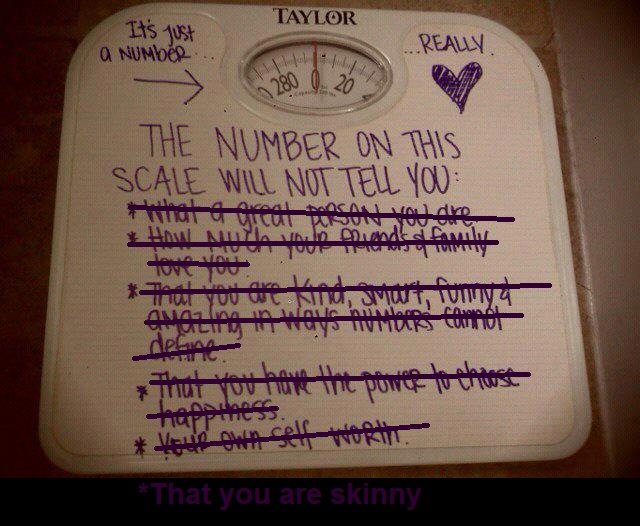 TAYLOR
It's just
a NUMBER...
...REALLY.
280 0 20
THE NUMBER ON THIS
SCALE WILL NOT TELL YOU:
* What a great person you are
* How much your friends & family
love you
* That you are kind, smart, funny &
amazing in ways numbers cannot
define.
* That you have the power to choose
happiness.
* Your own self worth.
*That you are skinny